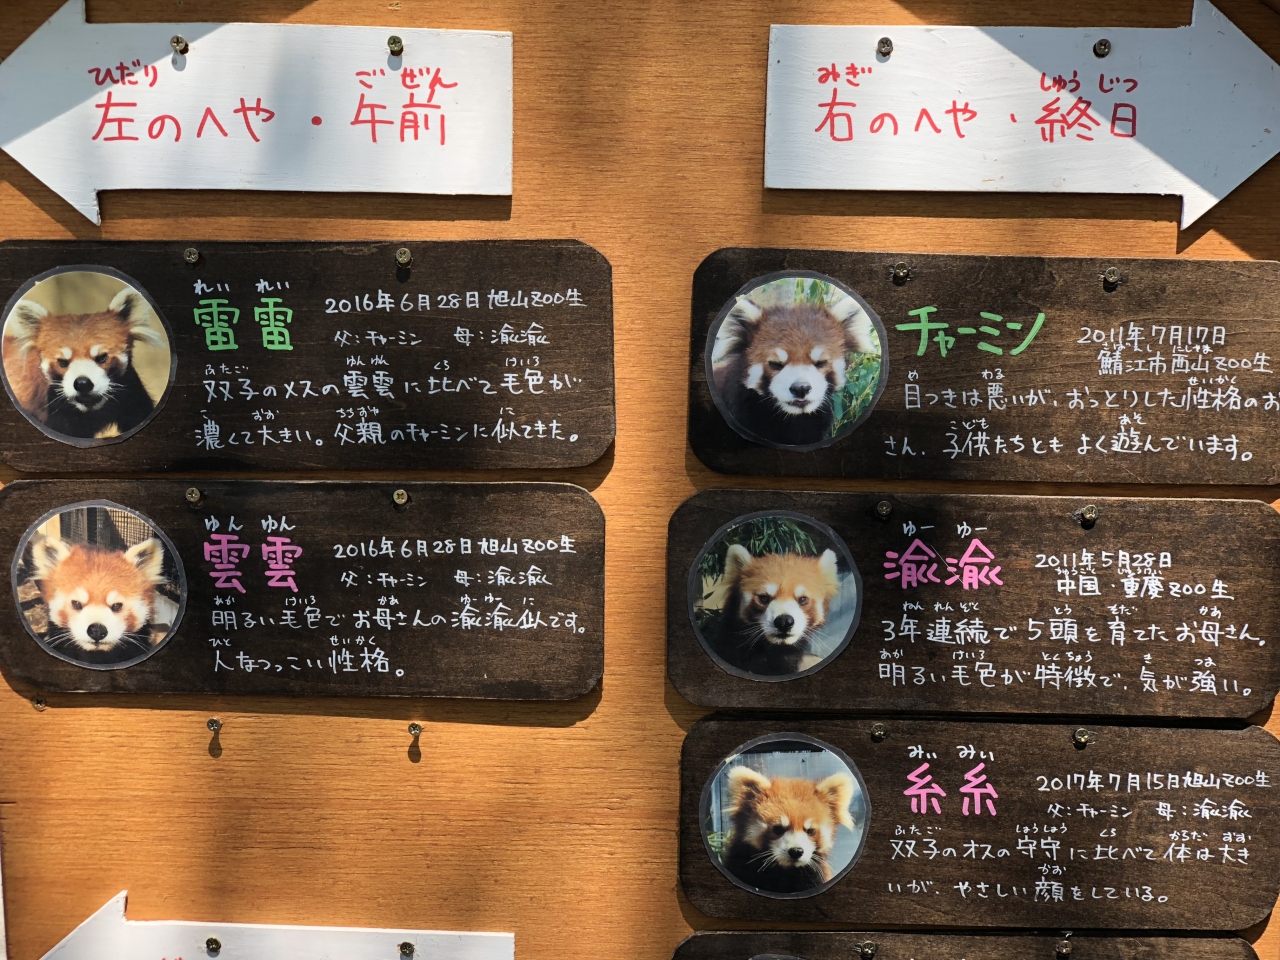 ひだり ご ぜん
左のへや・午前
れい れい
雷雷
2016年6月28日旭山ZOO生
父:チャーミン 母:渝渝
ふたご ゆんゆん くら けいろ
双子のメスの雲雲に比べて毛色が
こ おお ちちおや に
濃くて大きい。父親のチャーミンに似てきた。
ゆん ゆん
雲雲
2016年6月28日旭山ZOO生
父:チャーミン 母:渝渝
あか けいろ かあ ゆーゆー に
明るい毛色でお母さんの渝渝似です。
ひと せいかく
人なつっこい性格。
みぎ しゅう じつ
右のへや・終日
チャーミン
2011年7月17日
さばえし にしやま
鯖江市西山ZOO生
め わる せいかく
目つきは悪いが、おっとりした性格のお
こども あそ
さん。子供たちとも よく遊んでいます。
ゆー ゆー
渝渝
2011年5月28日
ちゅうごく じゅうけい
中国・重慶ZOO生
ねん れんぞく とう そだ かあ
3年連続で5頭を育てたお母さん。
あか けいろ とくちょう き つよ
明るい毛色が特徴で、気が強い。
みぃ みぃ
糸糸
2017年7月15日旭山ZOO生
父:チャーミン 母:渝渝
ふたご しょうしょう くら からだ おお
双子のオスの守守に比べて体は大き
かお
いが、やさしい顔をしている。